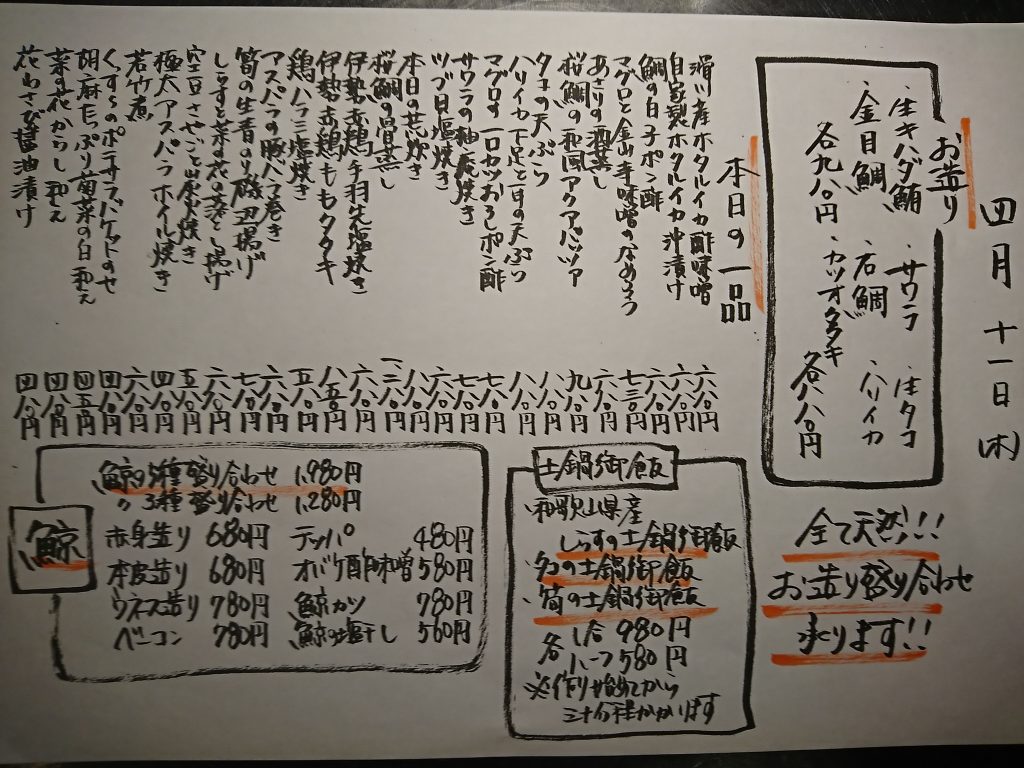 四月十一日(木)
お造り
・生キハダ鮪 ・サワラ ・生タコ
・金目鯛 ・石鯛 ・ハリイカ
各九八〇円 ・カツオタタキ 各八八〇円
全て天然!!
お造り盛り合わせ
承ります!!
本日の一品
滑川産ホタルイカ酢味噌 六八〇円
自家製ホタルイカ沖漬け 六八〇円
鯛の白子ポン酢 六八〇円
マグロと金山寺味噌のなめろう 七三〇円
あさりの酒蒸し 六八〇円
桜鯛の和風アクアパッツァ 九八〇円
タコの天ぷら 八八〇円
ハリイカ下足と耳の天ぷら 八八〇円
マグロの一口カツおろしポン酢 七八〇円
サワラの柚庵焼き 七八〇円
ツブ貝塩焼き 六八〇円
本日の煮炊き 八八〇円
桜鯛の骨蒸し
伊勢赤鶏手羽先塩焼き 六八〇円
伊勢赤鶏ももタタキ 八五〇円
鶏ハラミ塩焼き 五八〇円
アスパラの豚バラ巻き 六八〇円
筍の生青のり磯辺揚げ 七八〇円
しらすと菜の花の落とし揚げ 六八〇円
空豆さやごと炭火焼き 五八〇円
極太アスパラホイル焼き 四八〇円
若竹煮 六八〇円
くずし豆のポテサラバケットのせ 四八〇円
胡麻たっぷり菊菜の白和え 四五〇円
菜の花からし和え 四八〇円
花わさび醤油漬け 四八〇円
土鍋御飯
・和歌山県産
しらすの土鍋御飯
・タコの土鍋御飯
・筍の土鍋御飯
各 1合 980円
ハーフ 580円
※作り始めてから
三十分程かかります
鯨
鯨の5種盛り合わせ 1,980円
〃 3種盛り合わせ 1,280円
赤身造り 680円 テッパ 480円
本皮造り 680円 オバケ酢味噌 580円
ウネス造り 780円 鯨カツ 780円
ベーコン 780円 鯨の塩干し 560円